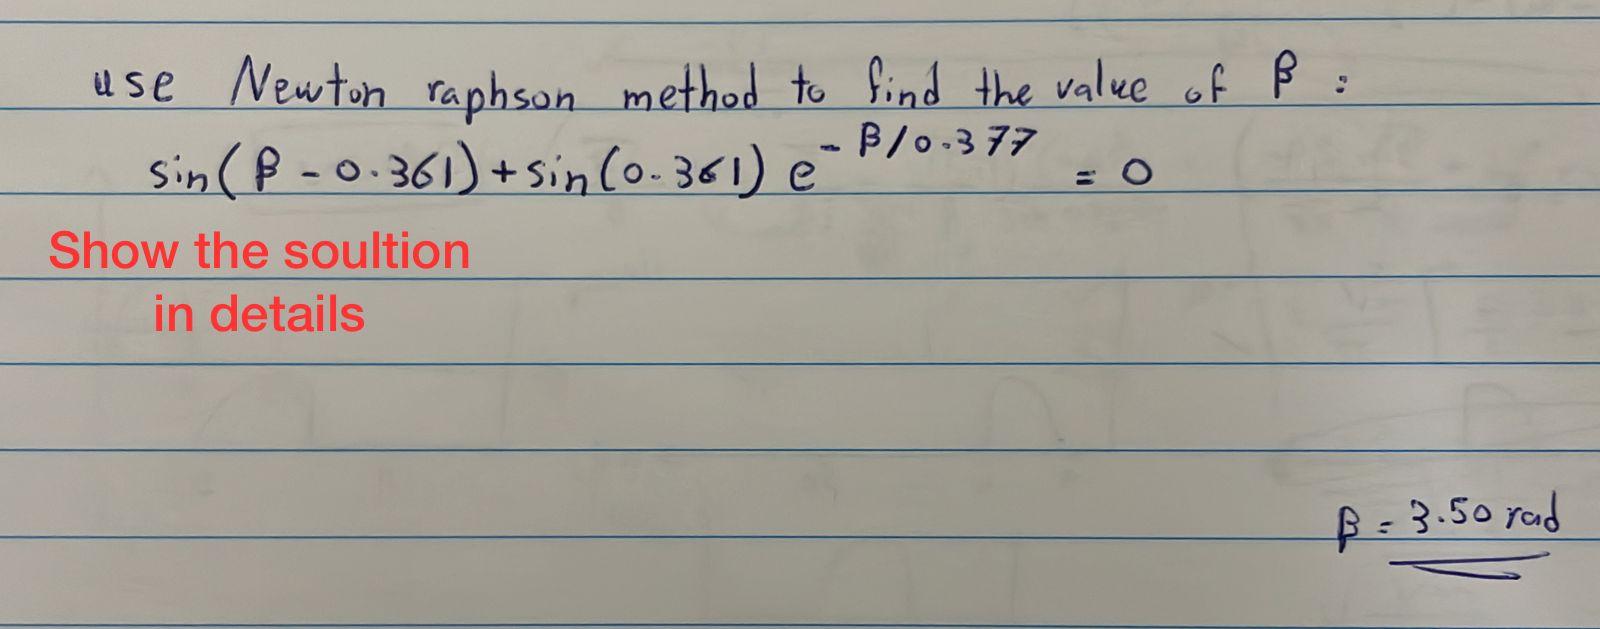 use Newton raphson method to find the value of β :
sin(β - 0.361) + sin(0.361) e^-β/0.377 = 0
Show the soultion
in details
β = 3.50 rad